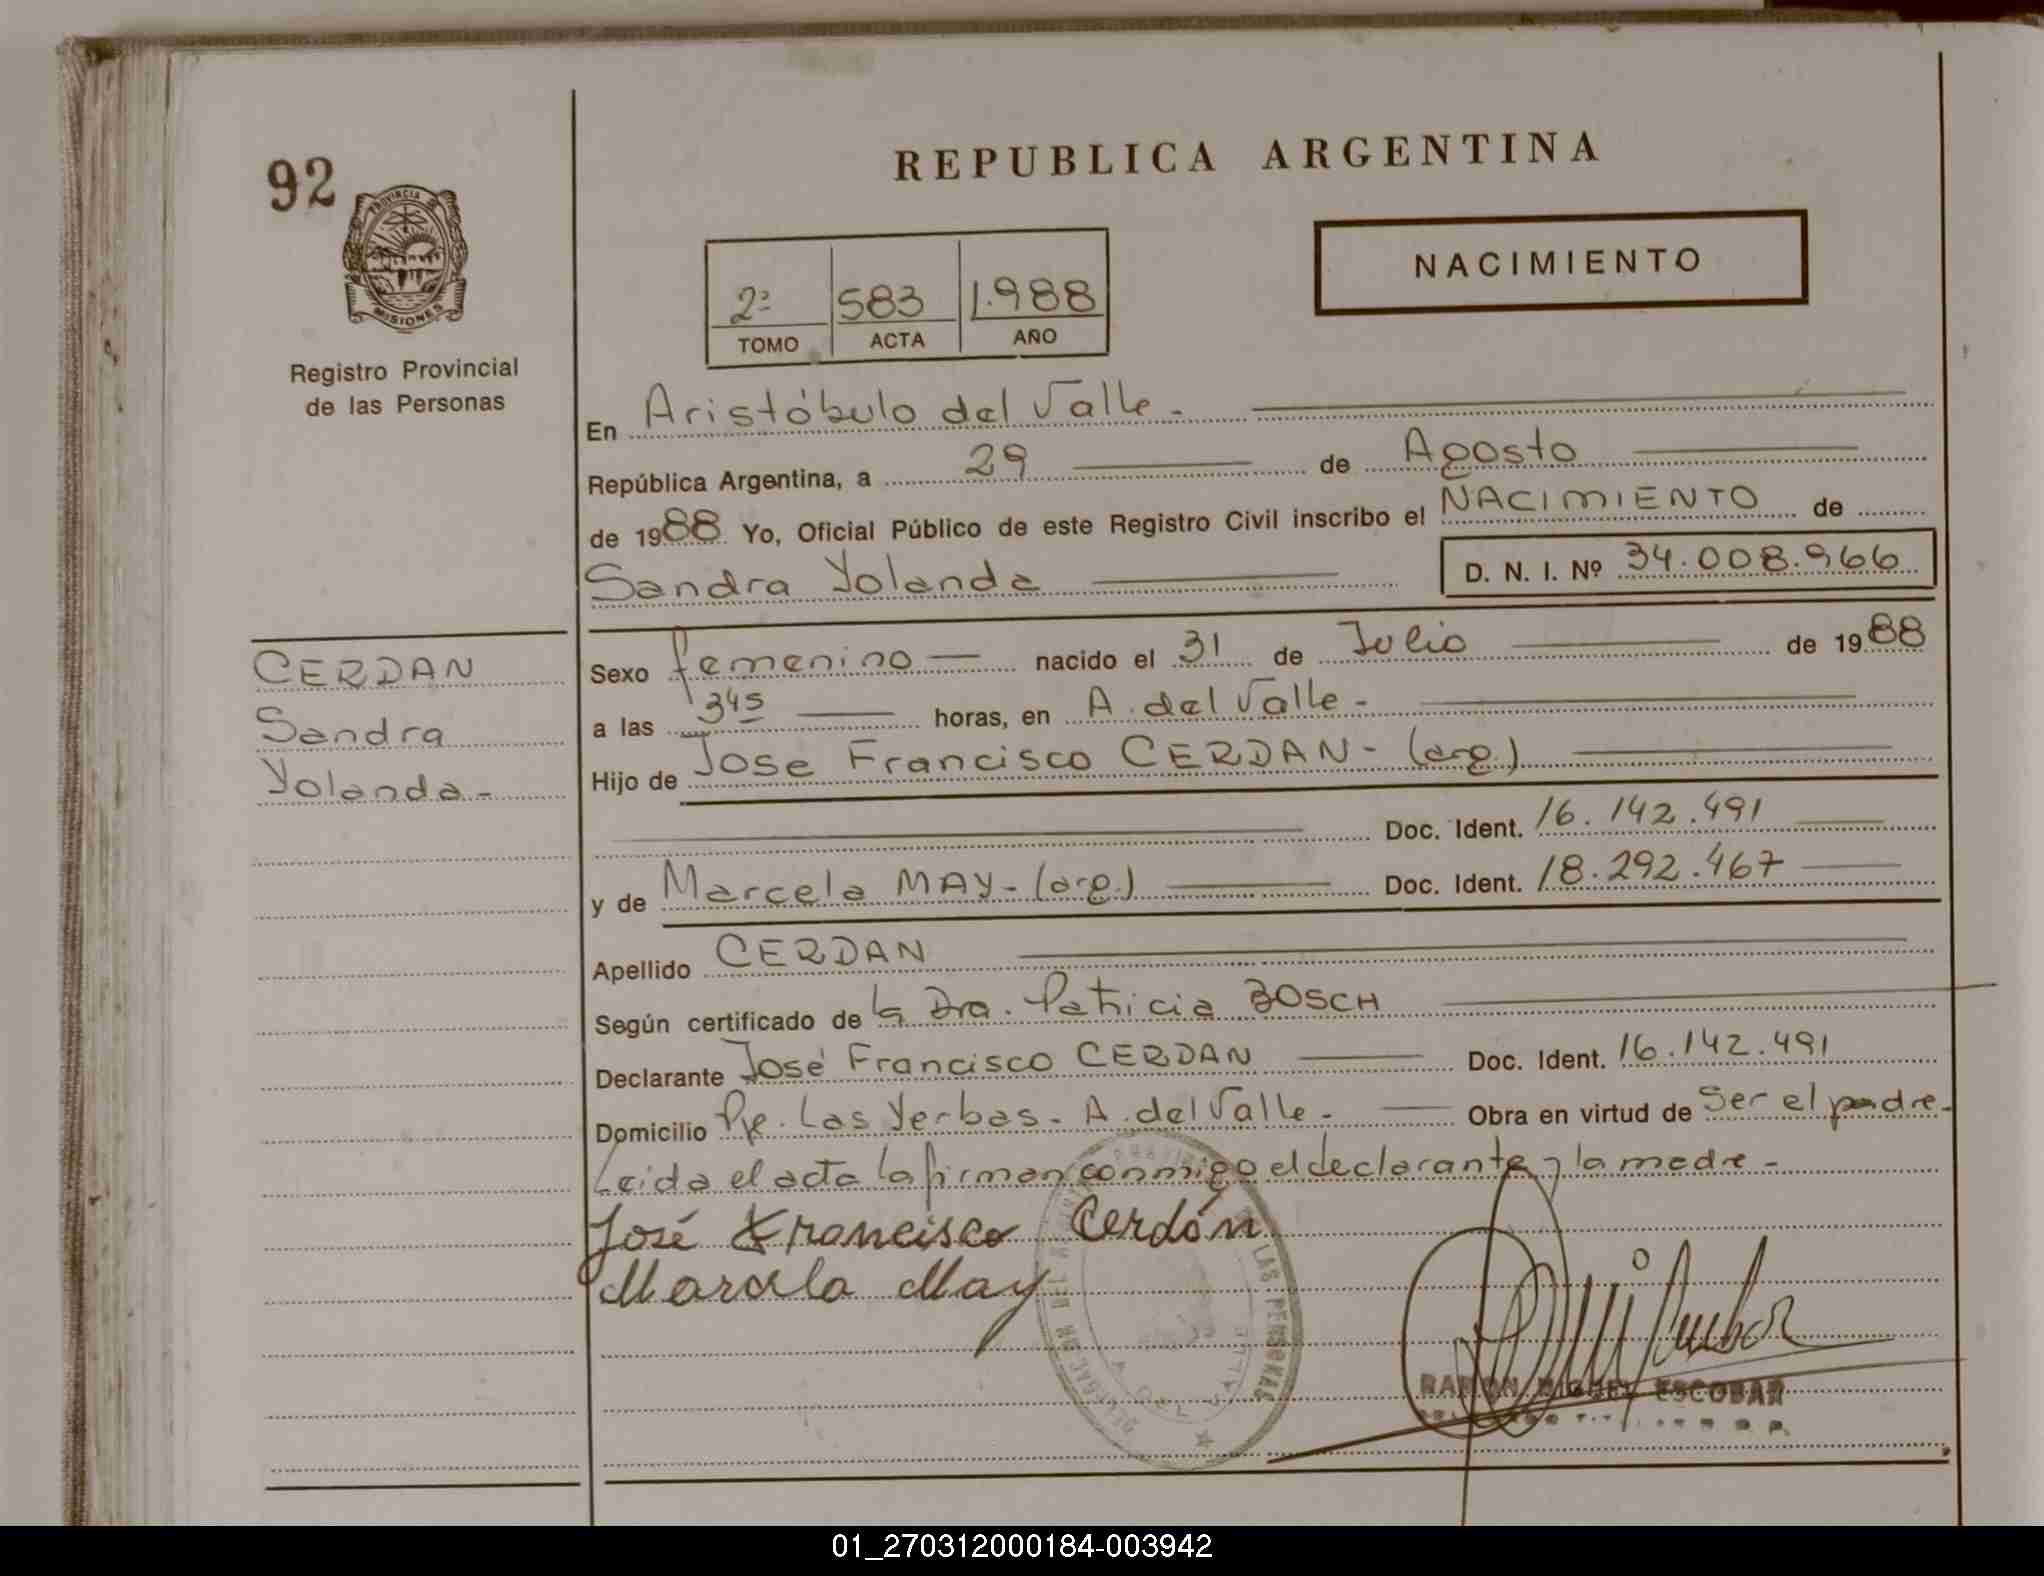 92
PROVINCIA DE
MISIONES
Registro Provincial
de las Personas
REPUBLICA ARGENTINA
NACIMIENTO
2º 583 1.988
TOMO ACTA AÑO
En Aristóbulo del Valle -
República Argentina, a 29 de Agosto
de 1988 Yo, Oficial Público de este Registro Civil inscribo el NACIMIENTO de
Sandra Yolanda D. N. I. Nº 34.008.966
CERDAN
Sandra
Yolanda -
Sexo femenino nacido el 31 de Julio de 1988
a las 3 45 horas, en A. del Valle -
Hijo de Jose Francisco CERDAN - (arg.)
Doc. Ident. 16.142.491
y de Marcela MAY - (arg.) Doc. Ident. 18.292.467
Apellido CERDAN
Según certificado de la Dra. Patricia BOSCH
Declarante José Francisco CERDAN Doc. Ident. 16.142.491
Domicilio Pje. Las Yerbas - A. del Valle - Obra en virtud de Ser el padre -
Leida el acta la firman conmigo el declarante y la madre -
José Francisco Cerdán
Marcela May
LAS PERSONAS
A. DEL VALLE
RAMON MIGUEL ESCOBAR
01_270312000184-003942